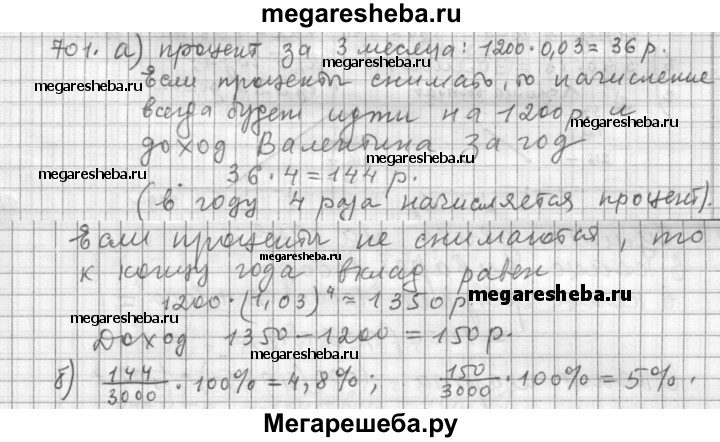 megaresheba.ru
701. а) процент за 3 месяца: 1200·0,03=36 р.
megaresheba.ru
megaresheba.ru
Если проценты снимать, то начисление
всегда будет идти на 1200 р и
megaresheba.ru
доход Валентина за год
megaresheba.ru
36·4=144 р.
megaresheba.ru
(в году 4 раза начисляется процент).
Если проценты не снимаются, то
к концу года вклад равен
1200·(1,03)⁴≈1350 р.
megaresheba.ru
megaresheba.ru
Доход 1350-1200=150 р.
megaresheba.ru
б) 144/3000·100%=4,8%; 150/3000·100%=5%.
megaresheba.ru
megaresheba.ru
Мегарешеба.ру